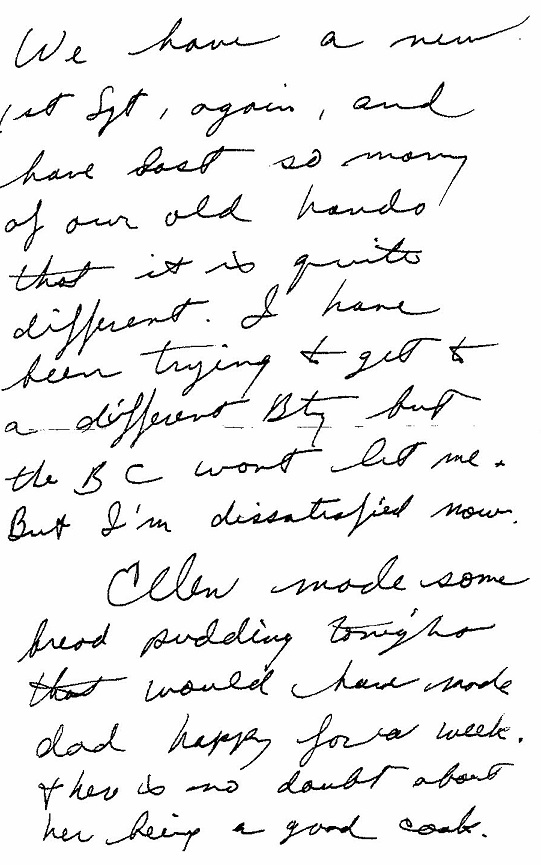 We have a new
1st Sgt, again, and
have lost so many
of our old hands
that it is quite
different. I have
been trying to get to
a different Bty but
the B C wont let me.
But I'm dissatisfied now.
Ellen made some
bread pudding tonight
that would have made
dad happy for a week.
There is no doubt about
her being a good cook.